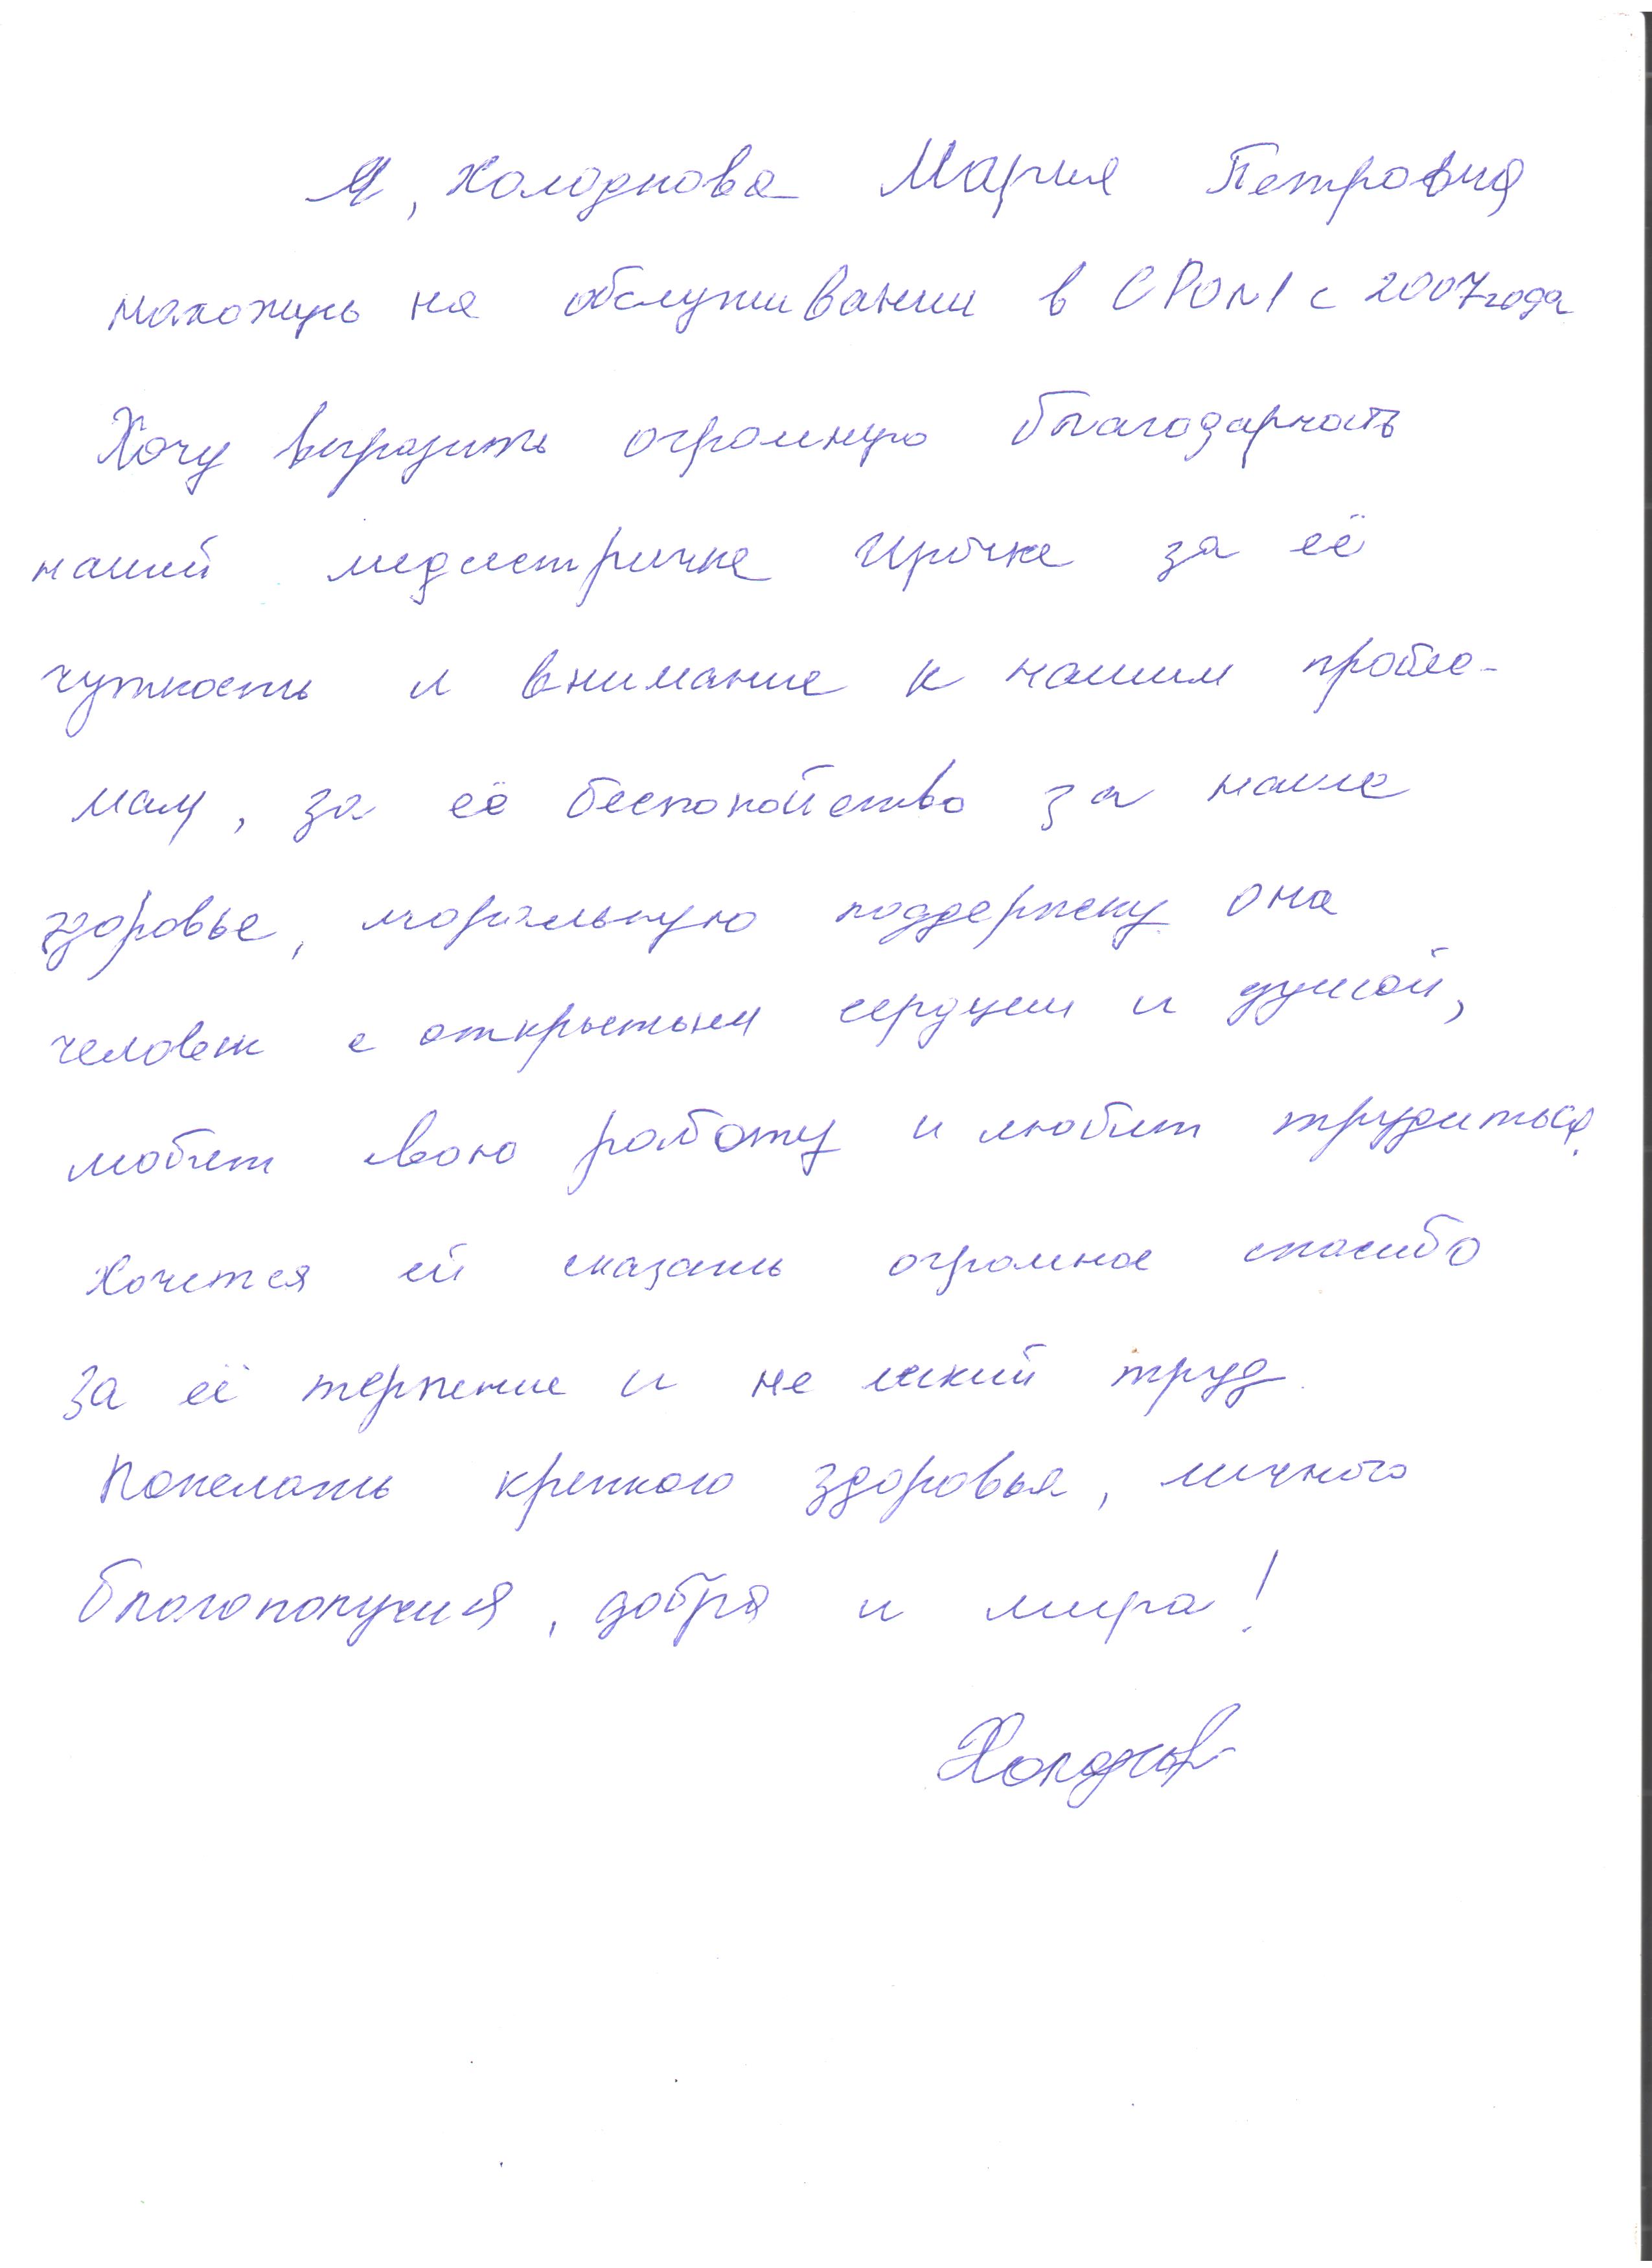 Я, Холоднова Мария Петровна
нахожусь на обслуживании в СРО №1 с 2007 года
Хочу выразить огромную благодарность
нашей медсестричке Ирочке за её
чуткость и внимание к нашим пробле-
мам, за её беспокойство за наше
здоровье, моральную поддержку она
человек с открытым сердцем и душой,
любит свою работу и любит трудиться.
Хочется ей сказать огромное спасибо
за её терпение и не легкий труд.
Пожелать крепкого здоровья, личного
благополучия, добра и мира!
Холоднов